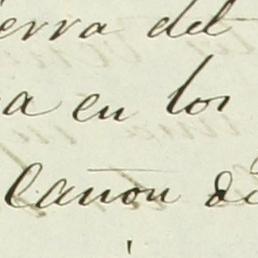 erra del
a en los
Cañon de